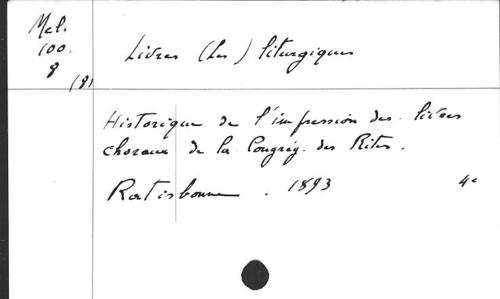 Mel.
100.
8
(81
Livres (Les) liturgiques
Historique de l'impression des livres
choraux de la Congrég. des Rites.
Ratisbonne. 1893 4º